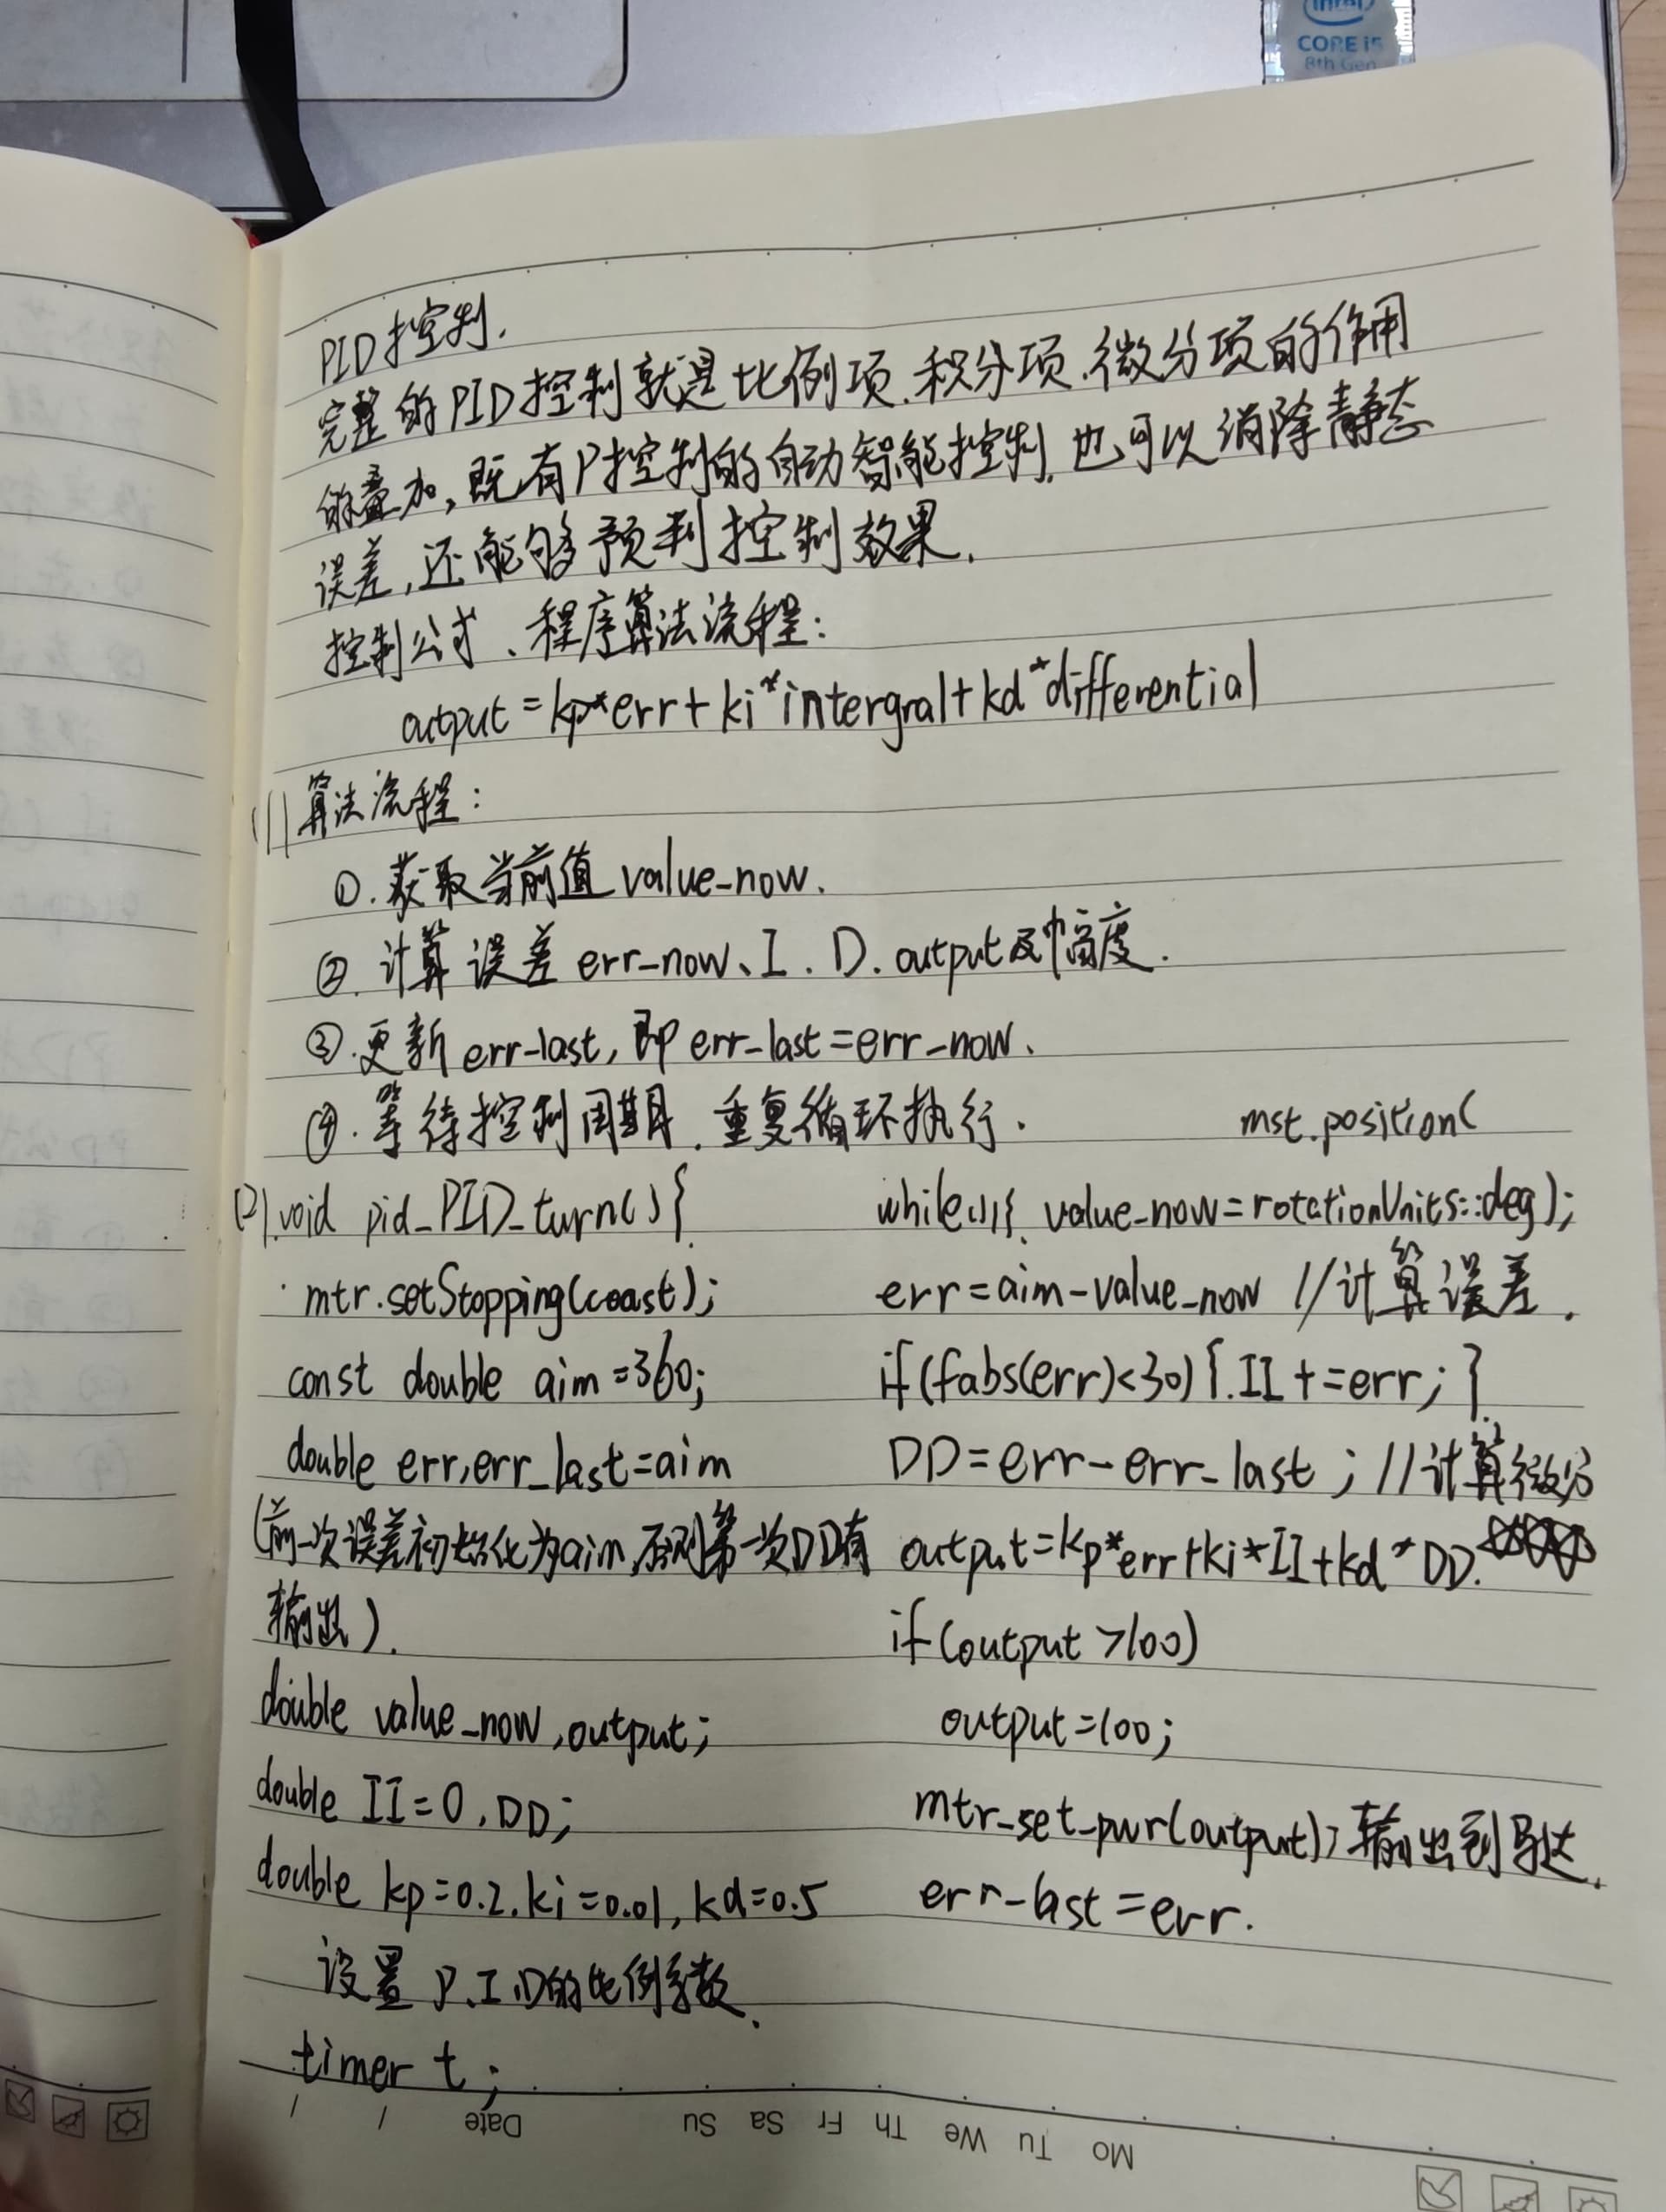 intel
CORE i5
8th Gen
PID控制.
完整的PID控制就是比例项.积分项.微分项的作用
的叠加,既有P控制的自动智能控制,也可以消除静态
误差,还能够预判控制效果.
控制公式、程序算法流程:
output=kp*err+ki*intergral+kd*differential
(1)算法流程:
①.获取当前值value_now.
②.计算误差err_now、I.D.output及幅度.
③.更新err-last,即err_last=err_now.
④.等待控制周期.重复循环执行.
(2).void pid_PID_turn(){
mtr.setStopping(coast);
const double aim=360;
double err,err_last=aim
(前一次误差初始化为aim,否则第一次DD有
输出).
double value_now,output;
double II=0,DD;
double kp=0.2.ki=0.01,kd=0.5
设置P.I.D的比例系数.
timer t;
mst.position(
while(1){ value_now=rotationUnits::deg);
err=aim-value_now //计算误差.
if(fabs(err)<30){.II+=err;}
DD=err-err_last;//计算微分
output=kp*err+ki*II+kd*DD.
if(output>100)
output=100;
mtr_set_pwr(output);输出到马达.
err-last=err.
Date Su Sa Fr Th We Tu Mo